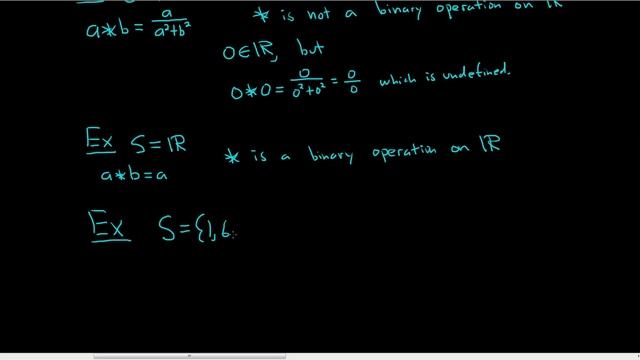 a*b = a/(a²+b²) * is not a binary operation on ℝ
0∈ℝ, but
0*0 = 0/(0²+0²) = 0/0 which is undefined.
Ex S=ℝ * is a binary operation on ℝ
a*b=a
Ex S={1,6